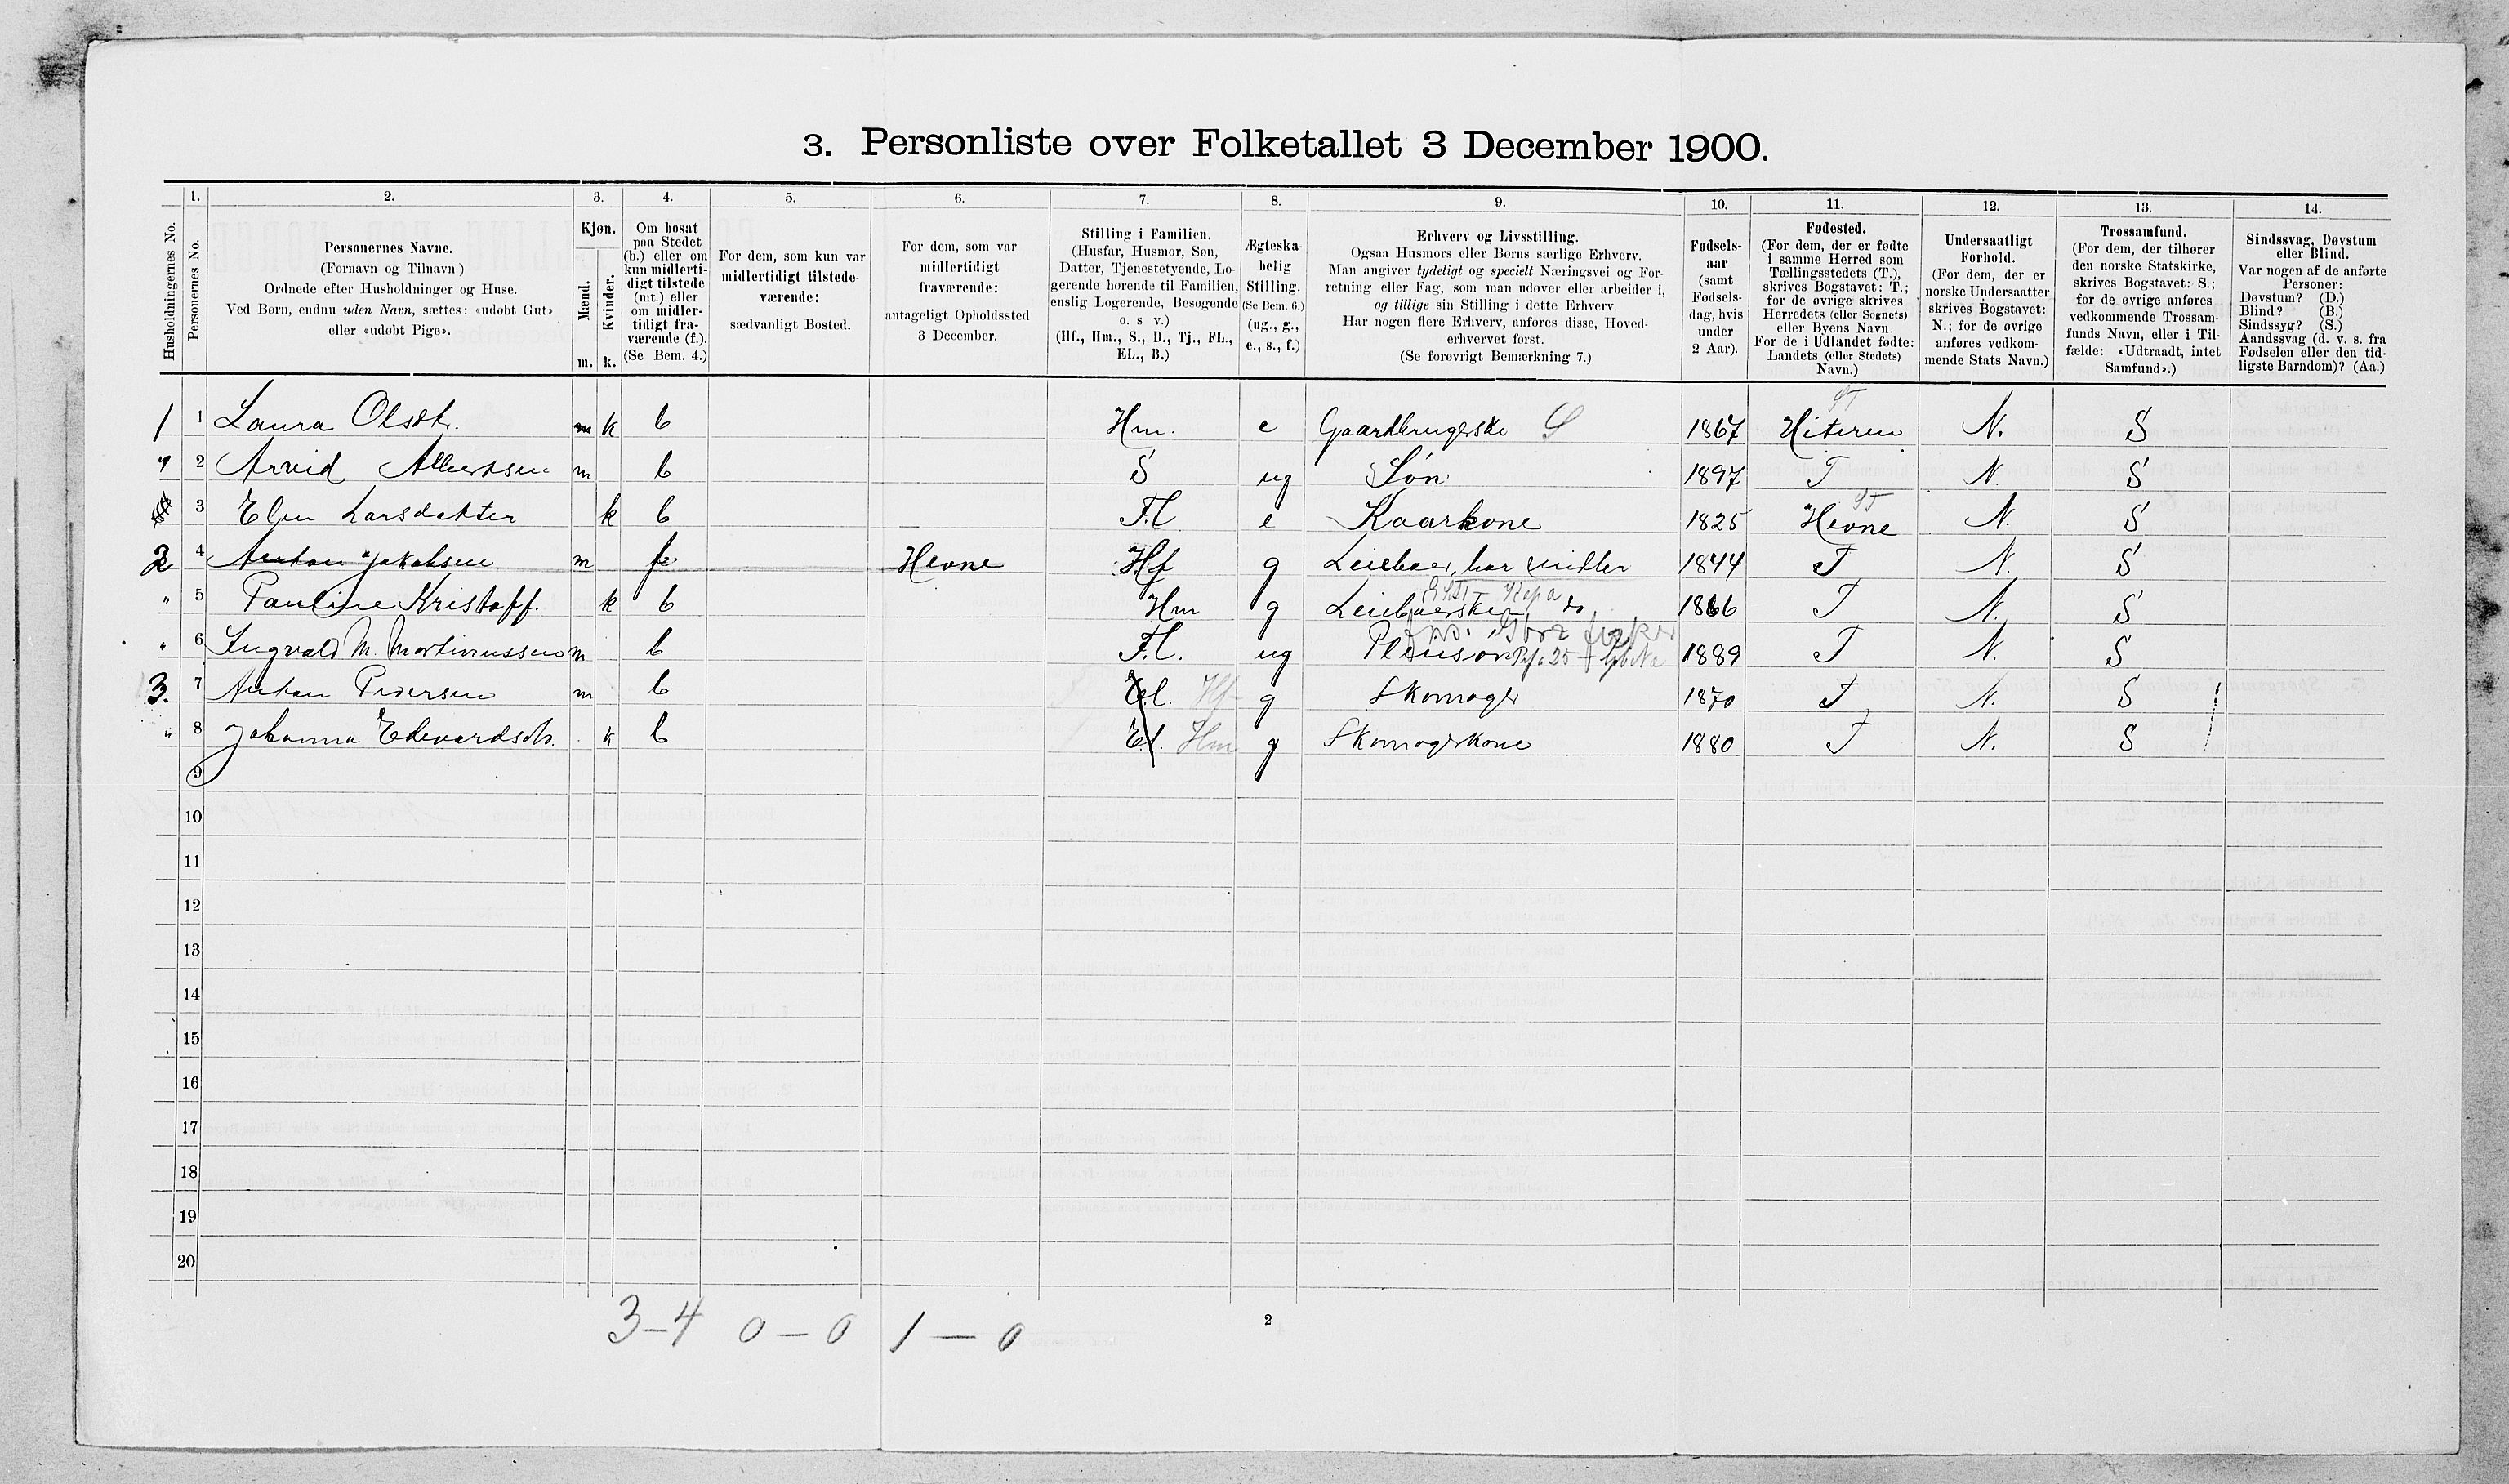 3. Personliste over Folketallet 3 December 1900.
1. 2. 3. 4. 5. 6. 7. 8. 9. 10. 11. 12. 13. 14.
Husholdningernes No.
Personernes No.
Personernes Navne.
(Fornavn og Tilnavn)
Ordnede efter Husholdninger og Huse.
Ved Børn, endnu uden Navn, sættes: «udøbt Gut»
eller «udøbt Pige».
Kjøn.
Mænd.
Kvinder.
m. k.
Om bosat
paa Stedet
(b.) eller om
kun midlerti-
digt tilstede
(mt.) eller
om midler-
tidigt fra-
værende (f.).
(Se Bem. 4.)
For dem, som kun var
midlertidigt tilstede-
værende:
sædvanligt Bosted.
For dem, som var
midlertidigt
fraværende:
antageligt Opholdssted
3 December.
Stilling i Familien.
(Husfar, Husmor, Søn,
Datter, Tjenestetyende, Lo-
gerende hørende til Familien,
enslig Logerende, Besøgende
o. s v.)
(Hf., Hm., S., D., Tj., FL.,
EL., B.)
Ægteska-
belig
Stilling.
(Se Bem. 6.)
(ug., g.,
e., s., f.)
Erhverv og Livsstilling.
Ogsaa Husmors eller Børns særlige Erhverv.
Man angiver tydeligt og specielt Næringsvei og For-
retning eller Fag, som man udøver eller arbeider i,
og tillige sin Stilling i dette Erhverv.
Har nogen flere Erhverv, anføres disse, Hoved-
erhvervet først.
(Se forøvrigt Bemærkning 7.)
Fødsels-
aar
(samt
Fødsels-
dag, hvis
under
2 Aar).
Fødested.
(For dem, der er fødte
i samme Herred som
Tællingsstedets (T.),
skrives Bogstavet: T.;
for de øvrige skrives
Herredets (eller Sognets)
eller Byens Navn.
For de i Udlandet fødte:
Landets (eller Stedets)
Navn.)
Undersaatligt
Forhold.
(For dem, der er
norske Undersaatter
skrives Bogstavet:
N.; for de øvrige
anføres vedkom-
mende Stats Navn.)
Trossamfund.
(For dem, der tilhører
den norske Statskirke,
skrives Bogstavet: S.;
for de øvrige anføres
vedkommende Trossam-
funds Navn, eller i Til-
fælde: «Udtraadt, intet
Samfund».)
Sindssvag, Døvstum
eller Blind.
Var nogen af de anførte
Personer:
Døvstum? (D.)
Blind? (B.)
Sindssyg? (S.)
Aandssvag (d. v. s. fra
Fødselen eller den tid-
ligste Barndom)? (Aa.)
1 1 Laura Olsdt. m k b Hm. e Gaardbrugerske S 1867 Hiteren N. S
" 2 Arvid Albertsen m b S ug Søn 1897 T N. S
3 Elen Larsdatter k b F.l. e Kaarkone 1825 Hevne N. S
2 4 Anton Jakobsen m f Hevne Hf g Leieboer, har midler 1844 T N. S
" 5 Pauline Kristoff. k b Hm g Leieboerske do 1866 T N. S
" 6 Ingvald M. Martinussen m b F.l. ug Pleiesøn 1889 T N. S
3. 7 Anton Pedersen m b E.l. Hf g Skomager 1870 T N. S
" 8 Johanna Edevardsdt. k b El. Hm g Skomagerkone 1880 T N. S
9
10
11
12
13
14
15
16
17
18
19
20
3-4 0-0 1-0
2